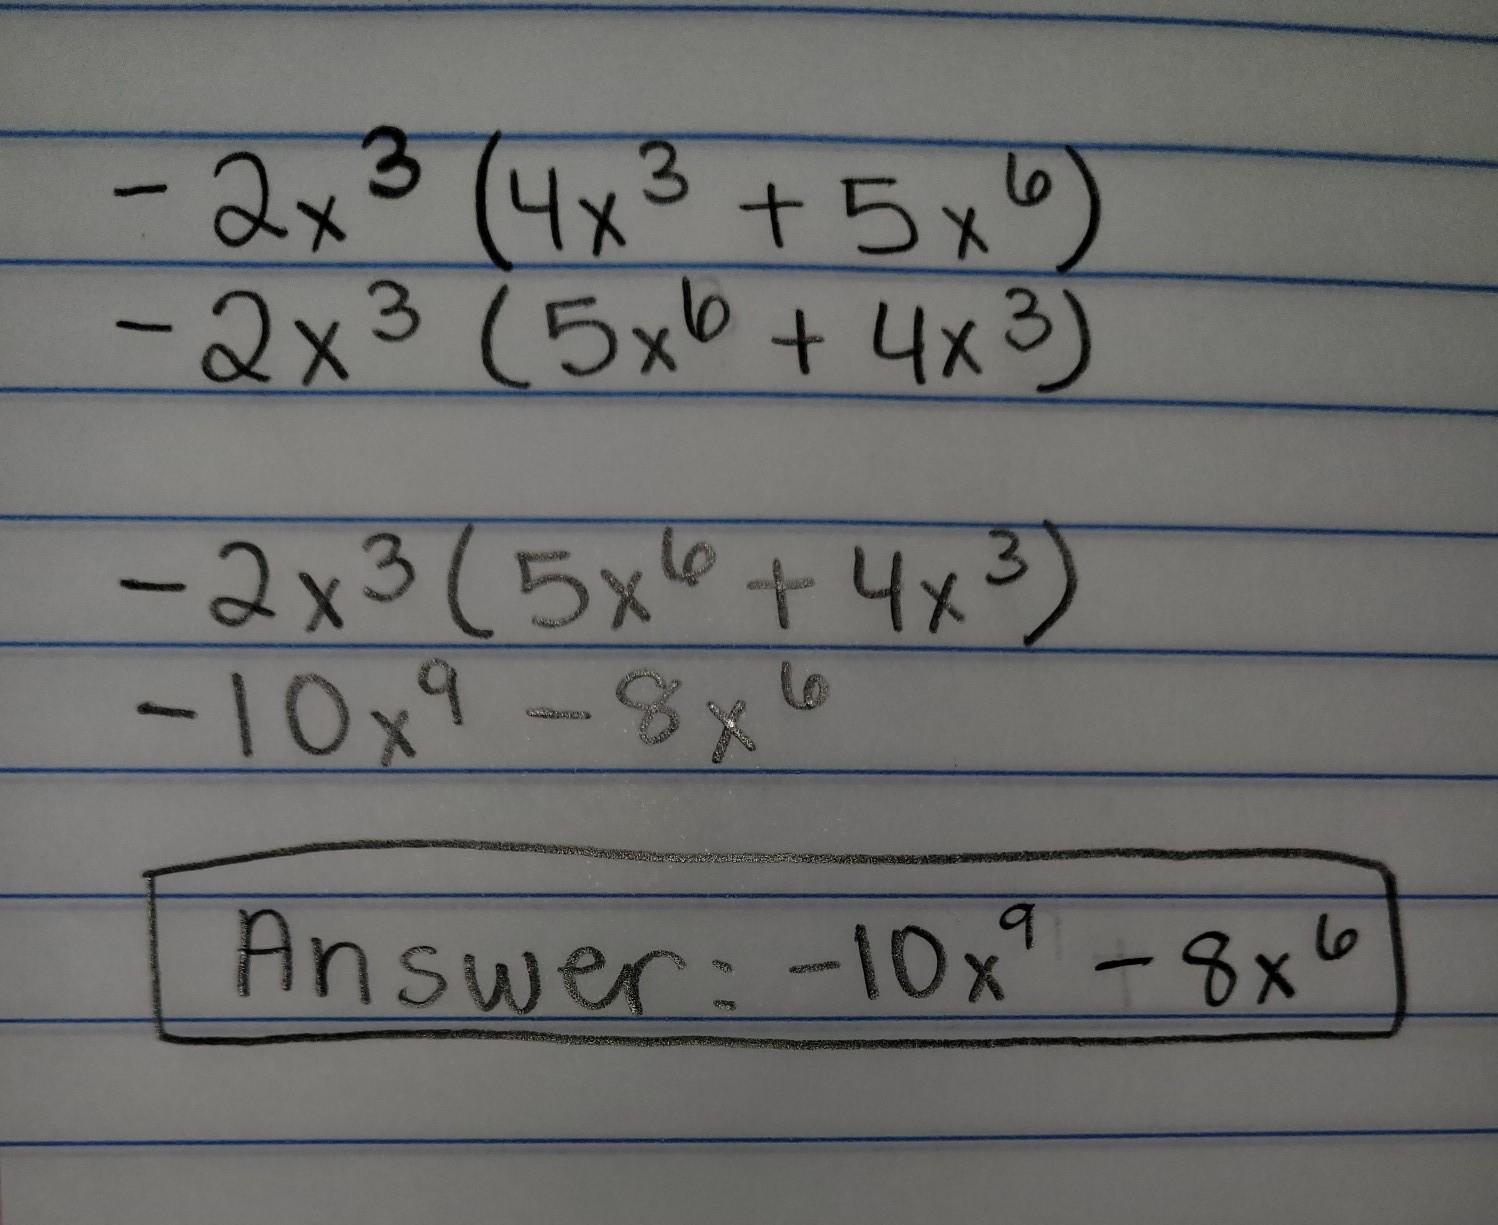 -2x³(4x³ + 5x⁶)
-2x³(5x⁶ + 4x³)
-2x³(5x⁶ + 4x³)
-10x⁹ - 8x⁶
Answer: -10x⁹ - 8x⁶